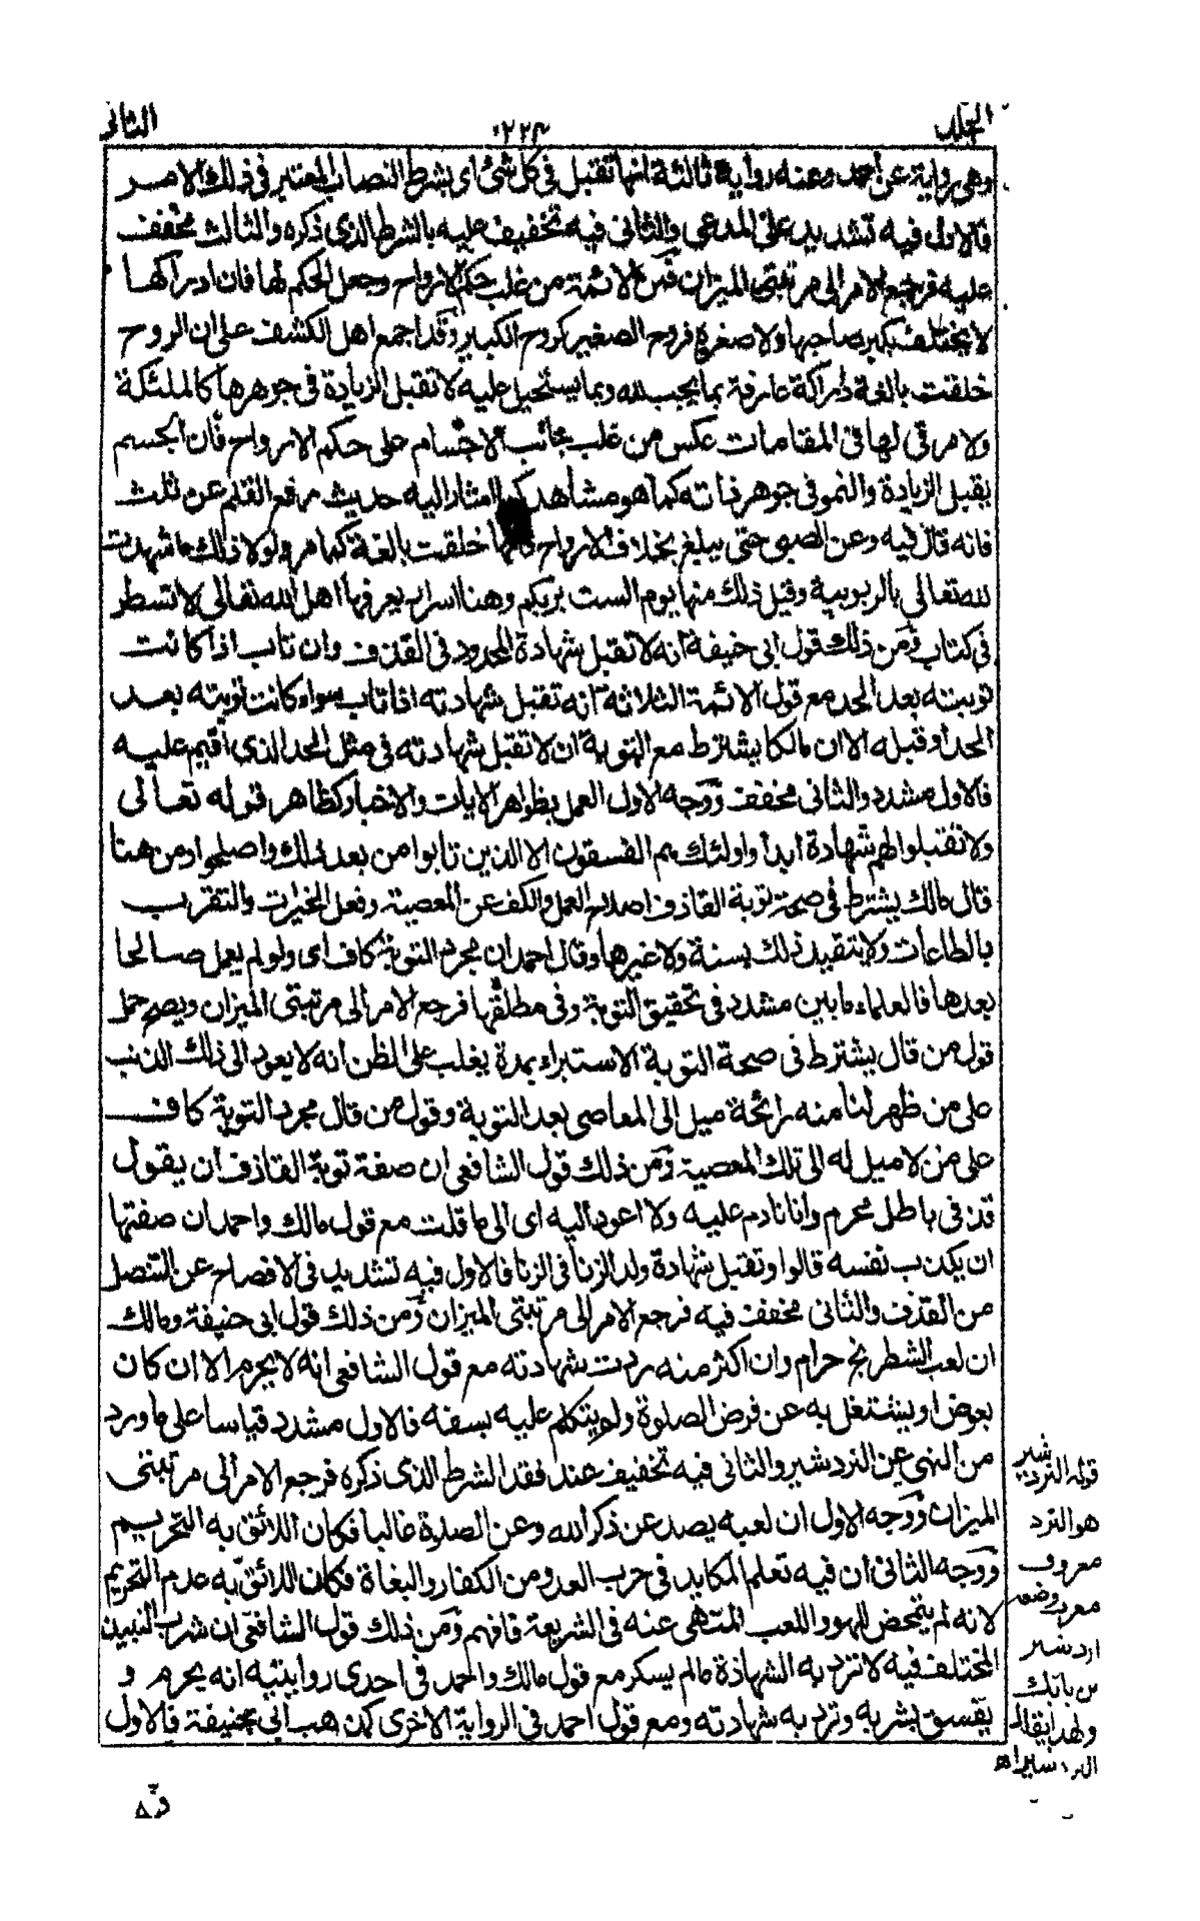 الجلد
٢٢٣
الثاني
وهي رواية عن أحمد وعنه رواية ثالثة انها تقبل في كل شئ اى بشرط النصاب المعتبر في ذلك الامر
فالاول فيه تشديد على المدعى والثانى فيه تخفيف عليه بالشرط الذى ذكره والثالث مخفف
عليه فرجع الامر الى مرتبتى الميزان فمن الائمة من غلب حكم الارواح وجعل الحكم لها فان ادراكها
لا يختلف بكبر صاحبها ولا صغره فروح الصغير كروح الكبير وقد اجمع اهل الكشف على ان الروح
خلقت بالغة دراكة عارفة بما يجب لله وبما يستحيل عليه لا تقبل الزيادة فى جوهرها كالملئكة
ولا مرقى لها فى المقامات عكس من غلب جانب الاجسام على حكم الارواح فان الجسم
يقبل الزيادة والنمو فى جوهر ذاته كما هو مشاهد كما اشار اليه حديث رفع القلم عن ثلث
فانه قال فيه وعن الصبى حتى يبلغ بخلاف الارواح فانها خلقت بالغة كما مر ولولا ذلك ما شهدت
لله تعالى بالربوبية وقيل ذلك منها يوم الست بربكم وهنا اسرار يعرفها اهل الله تعالى لا تسطر
فى كتاب ومن ذلك قول ابى حنيفة انه لا تقبل شهادة المحدود فى القذف وان تاب اذا كانت
توبته بعد الحد مع قول الائمة الثلاثة انه تقبل شهادته اذا تاب سواء كانت توبته بعد
الحد او قبله الا ان مالكا يشترط مع التوبة ان لا تقبل شهادته فى مثل الحد الذى اقيم عليه
فالاول مشدد والثانى مخفف ووجه الاول العمل بظواهر الايات والاخبار كظاهر قوله تعالى
ولا تقبلوا لهم شهادة ابدا واولئك هم الفسقون الا الذين تابوا من بعد ذلك واصلحوا ومن هنا
قال مالك يشترط فى صحة توبة القاذف اصلاح العمل والكف عن المعصية وفعل الخيرات والتقرب
بالطاعات ولا يتقيد ذلك بسنة ولا غيرها وقال احمد ان مجرد التوبة كاف اى ولو لم يعمل صالحا
بعدها فالعلماء ما بين مشدد فى تحقيق التوبة وفى مطلقها فرجع الامر الى مرتبتى الميزان ويصح حمل
قول من قال يشترط فى صحة التوبة الاستبراء بمدة يغلب على الظن انه لا يعود الى ذلك الذنب
على من ظهر لنا منه رائحة ميل الى المعاصى بعد التوبة وقول من قال مجرد التوبة كاف
على من لا ميل له الى تلك المعصية ومن ذلك قول الشافعى ان صفة توبة القاذف ان يقول
قذفى باطل محرم وانا نادم عليه ولا اعود اليه اى الى ما قلت مع قول مالك واحمد ان صفتها
ان يكذب نفسه قالوا وتقبل شهادة ولد الزنا فى الزنا فالاول فيه تشديد فى الافصاح عن التنصل
من القذف والثانى مخفف فيه فرجع الامر الى مرتبتى الميزان ومن ذلك قول ابى حنيفة ومالك
ان لعب الشطرنج حرام وان اكثر منه ردت شهادته مع قول الشافعى انه لا يحرم الا ان كان
بعوض او يشتغل به عن فرض الصلوة ولو يتكلم عليه بسفه فالاول مشدد قياسا على ما ورد
من النهى عن النردشير والثانى فيه تخفيف عند فقد الشرط الذى ذكره فرجع الامر الى مرتبتى
الميزان ووجه الاول ان لعبه يصد عن ذكر الله وعن الصلوة غالبا فكان اللائق به التحريم
ووجه الثانى ان فيه تعلم المكايد فى حرب العدو من الكفار والبغاة فكان اللائق به عدم التحريم
لانه لم يتمحض للهو واللعب المنهى عنه فى الشريعة فافهم ومن ذلك قول الشافعى ان شرب النبيذ
المختلف فيه لا ترد به الشهادة ما لم يسكر مع قول مالك واحمد فى احدى روايتيه انه يحرم و
يفسق بشربه وترد به شهادته ومع قول احمد فى الرواية الاخرى كمذهب ابى حنيفة فالاول
قوله النردشير
هو النرد
معروف
معرب وضعه
اردشير
بن بابك
ولهذا يقال
النردشير اه
فيه